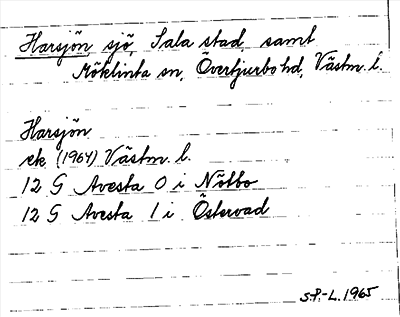 Harsjön, sjö, Sala stad, samt
Möklinta sn, Övertjurbo hd, Västm. l.
Harsjön
ek. (1964) Västm. l.
12 G Avesta 0 i Nötbo
12 G Avesta 1 i Östervad
S.P.-L. 1965